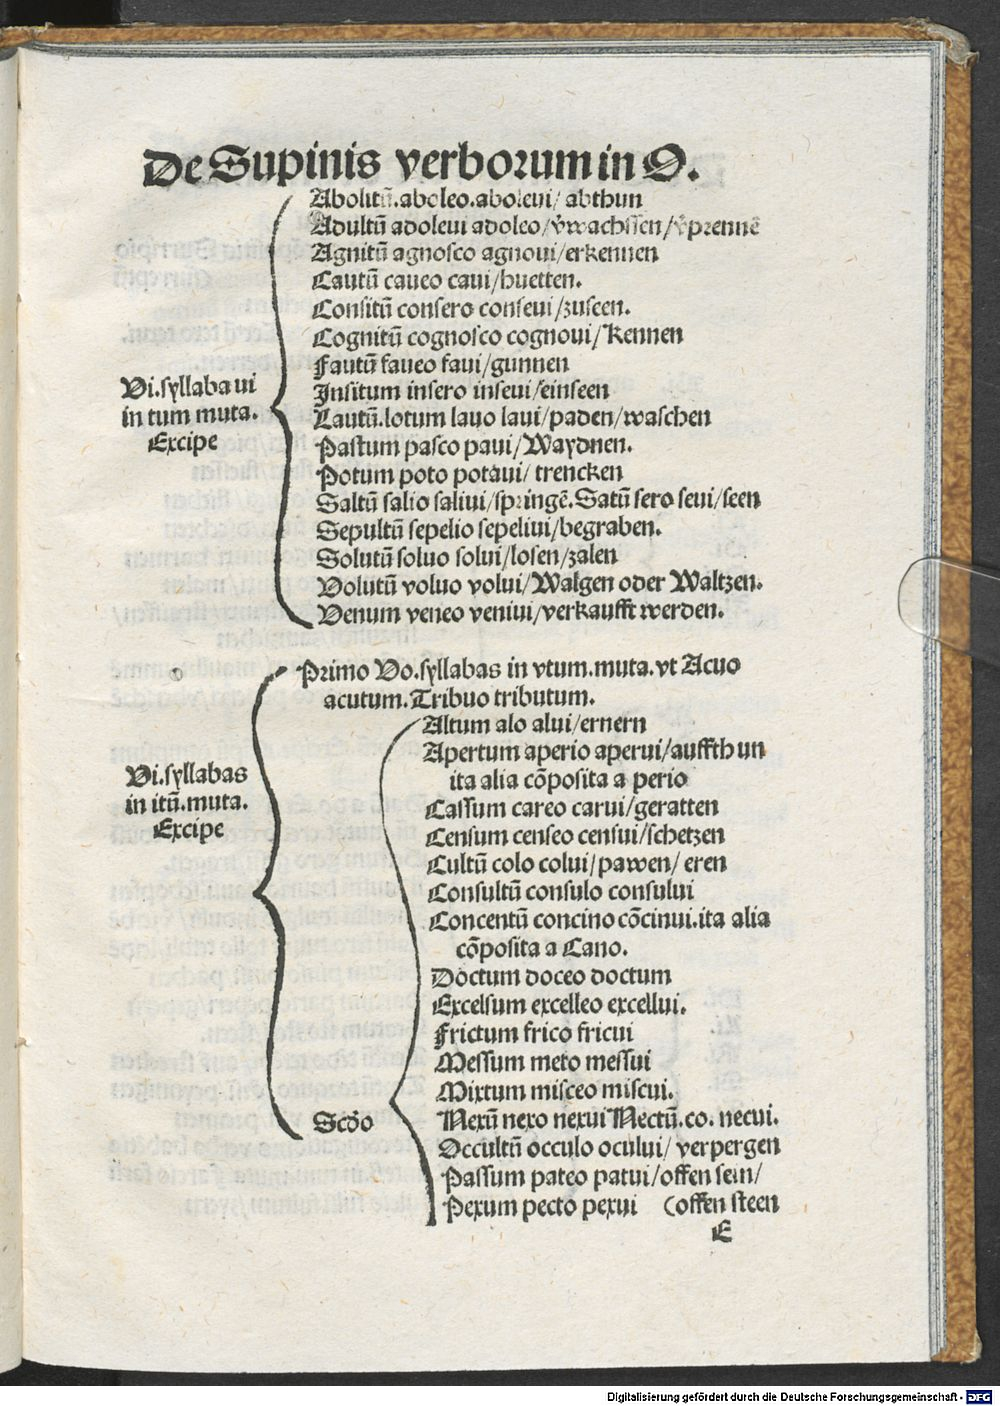 De Supinis verborum in O.
Abolitū.aboleo.aboleui/ abthun
Adultū adoleui adoleo/v̄wachssen/v̄prennē
Agnitū agnosco agnoui/erkennen
Cautū caueo caui/huetten.
Consitū consero conseui/zuseen.
Cognitū cognosco cognoui/kennen
Fautū faueo faui/gunnen
Vi.syllaba ui
in tum muta.
Excipe
Insitum insero inseui/einseen
Lautū.lotum lauo laui/paden/waschen
Pastum pasco paui/Waydnen.
Potum poto potaui/ trencken
Saltū salio saliui/springē.Satū sero seui/seen
Sepultū sepelio sepeliui/begraben.
Solutū soluo solui/losen/zalen
Volutū voluo volui/Walgen oder Waltzen.
Venum veneo veniui/verkaufft werden.
Primo Vo.syllabas in vtum.muta.vt Acuo
acutum.Tribuo tributum.
Vi.syllabas
in itū.muta.
Excipe
Scd̄o
Altum alo alui/ernern
Apertum aperio aperui/auffthun
ita alia cōposita a perio
Cassum careo carui/geratten
Censum censeo censui/schetzen
Cultū colo colui/pawen/ eren
Consultū consulo consului
Concentū concino cōcinui.ita alia
cōposita a Cano.
Doctum doceo doctum
Excelsum excelleo excellui.
Frictum frico fricui
Messum meto messui
Mixtum misceo miscui.
Nexū nexo nexui Nectū.co. necui.
Occultū occulo ocului/ verpergen
Passum pateo patui/offen sein/
Pexum pecto pexui (offen steen
E
Digitalisierung gefördert durch die Deutsche Forschungsgemeinschaft - DFG